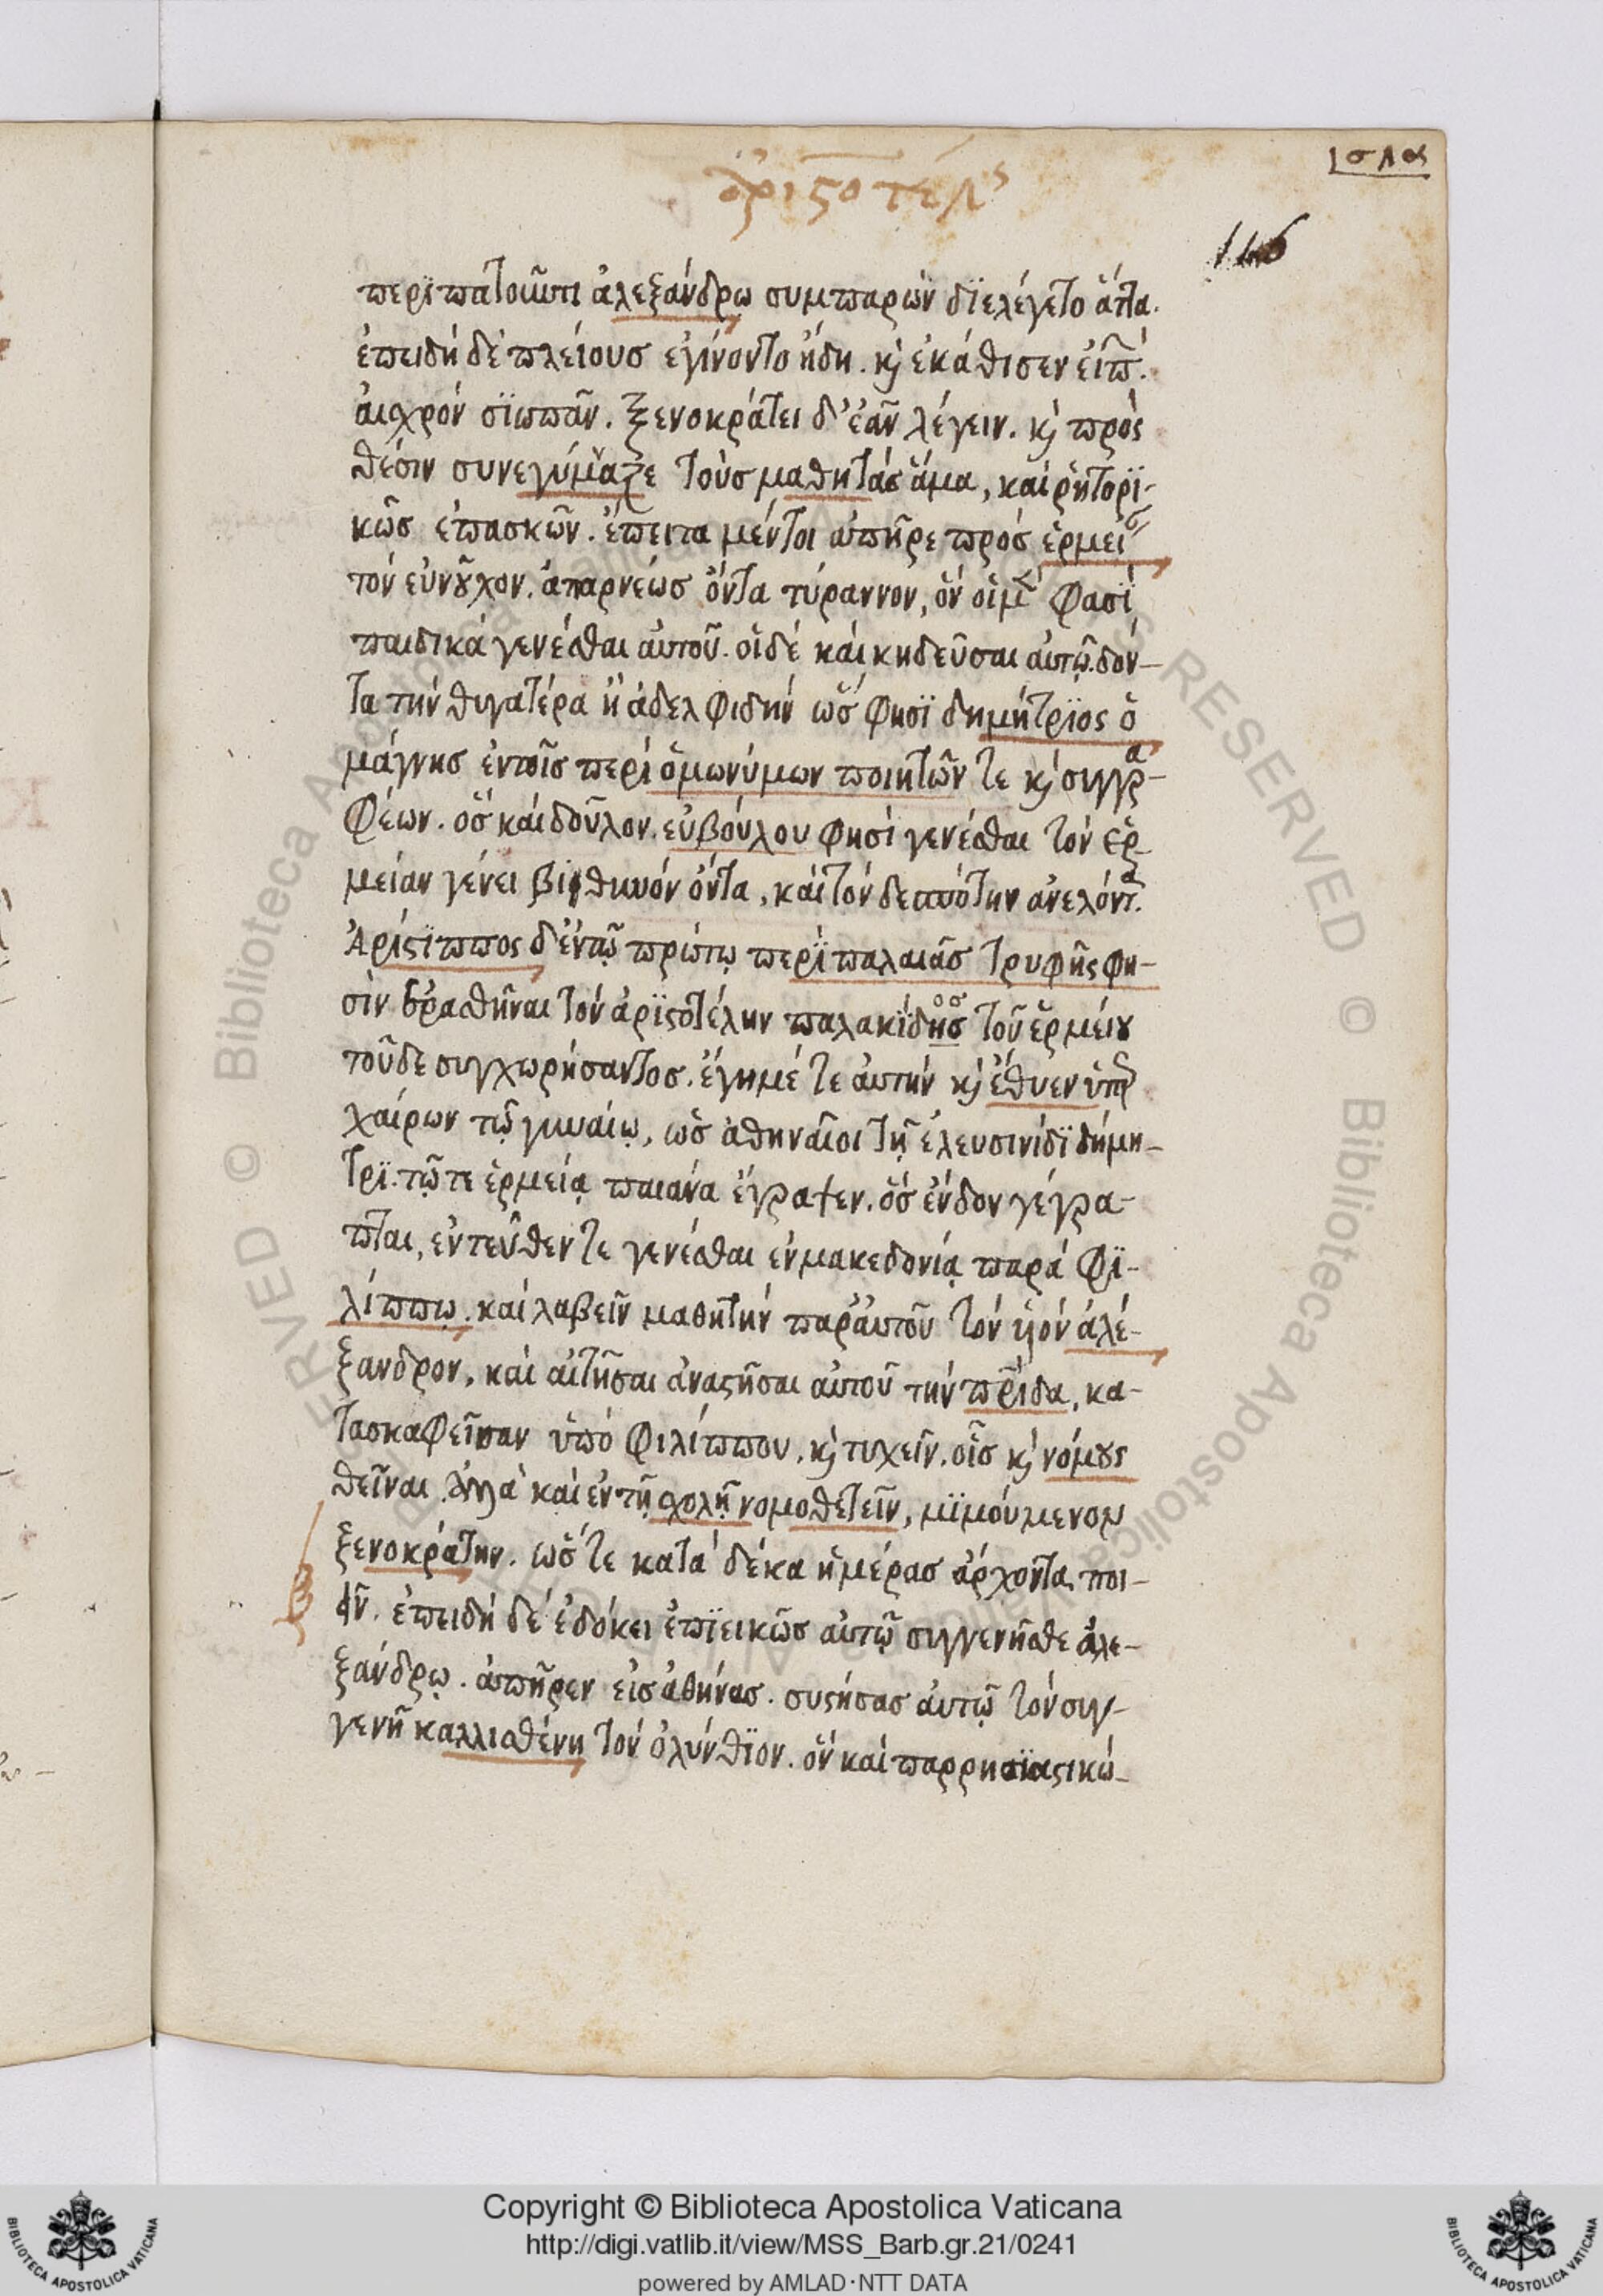 ἀριστοτέλς
σλα
146
περιπατοῦντι ἀλεξάνδρω συμπαρὼν διελέγετο ἄττα.
ἐπειδὴ δὲ πλείους ἐγίνοντο ἤδη. κ ἐκάθισεν εἰπ.
αἰσχρόν σϊωπᾶν. ξενοκράτει δ' ἐᾶν λέγειν. κ πρὸς
θέσιν συνεγύμναζε τοὺσ μαθητὰς ἅμα, καὶ ῥητορϊ-
κῶσ ἐπασκῶν. ἔπειτα μέντοι ἀπῆρε πρόσ ἑρμεί
τόν εὐνοῦχον. ἀταρνέωσ ὄντα τύραννον, ὅν οἱ μ φασϊ
παιδικά γενέσθαι αὐτοῦ. οἱ δέ καὶ κηδεῦσαι αὐτῷ. δόν-
τα τήν θυγατέρα ἢ ἀδελφιδήν ὥσ φησϊ δημήτρϊος ὁ
μάγνησ ἐν τοῖσ περί ὁμωνύμων ποιητῶν τε κ συγγρα-
φέων. ὅσ καί δοῦλον. εὐβούλου φησί γενέσθαι τόν ἑρ-
μείαν γένει βιθυνόν ὄντα, καί τόν δεσπότην ἀνελόντα.
Ἀρίστϊππος δ' ἐν τῷ πρώτῳ περϊ παλαιᾶσ τρυφῆς φη-
σὶν ἐρασθῆναι τόν ἀρϊστοτέλην παλακϊδὴσ τοῦ ἑρμείου
τοῦ δε συγχωρήσαντοσ. ἔγημέ τε αὐτήν κ ἔθυεν ὑπερ
χαίρων τῷ γυναίῳ, ὡσ ἀθηναῖοι τῇ ἐλευσινίδϊ δήμη-
τρϊ. τῷ τε ἑρμείᾳ παιάνα ἔγραψεν. ὅσ ἔνδον γέγρα-
πται, ἐντεῦθεν τε γενέσθαι ἐν μακεδονίᾳ παρά φϊ-
λίππῳ. καί λαβεῖν μαθητήν παρ' αὐτοῦ τόν υἱόν ἀλέ-
ξανδρον, καί αἰτῆσαι ἀναστῆσαι αὐτοῦ τήν πρίδα, κα-
τασκαφεῖσαν ὑπό φιλίππου, κ τυχεῖν. οἷσ κ νόμους
θεῖναι. ἀλλὰ καί ἐν τῇ σχολῇ νομοθετεῖν, μϊμούμενον
ξενοκράτην. ὥσ τε κατὰ δέκα ἡμέρασ ἄρχοντα ποι-
εῖν. ἐπειδή δέ ἐδόκει ἐπϊεικῶσ αὐτῷ συγγενῆσθε ἀλε-
ξάνδρῳ. ἀπῆρεν εἰσ ἀθήνασ. συστήσασ αὐτῷ τόν συγ-
γενῆ καλλισθένη τόν ὀλύνθϊον. ὅν καί παρρησϊαστικώ-
Copyright © Biblioteca Apostolica Vaticana
http://digi.vatlib.it/view/MSS_Barb.gr.21/0241
powered by AMLAD·NTT DATA